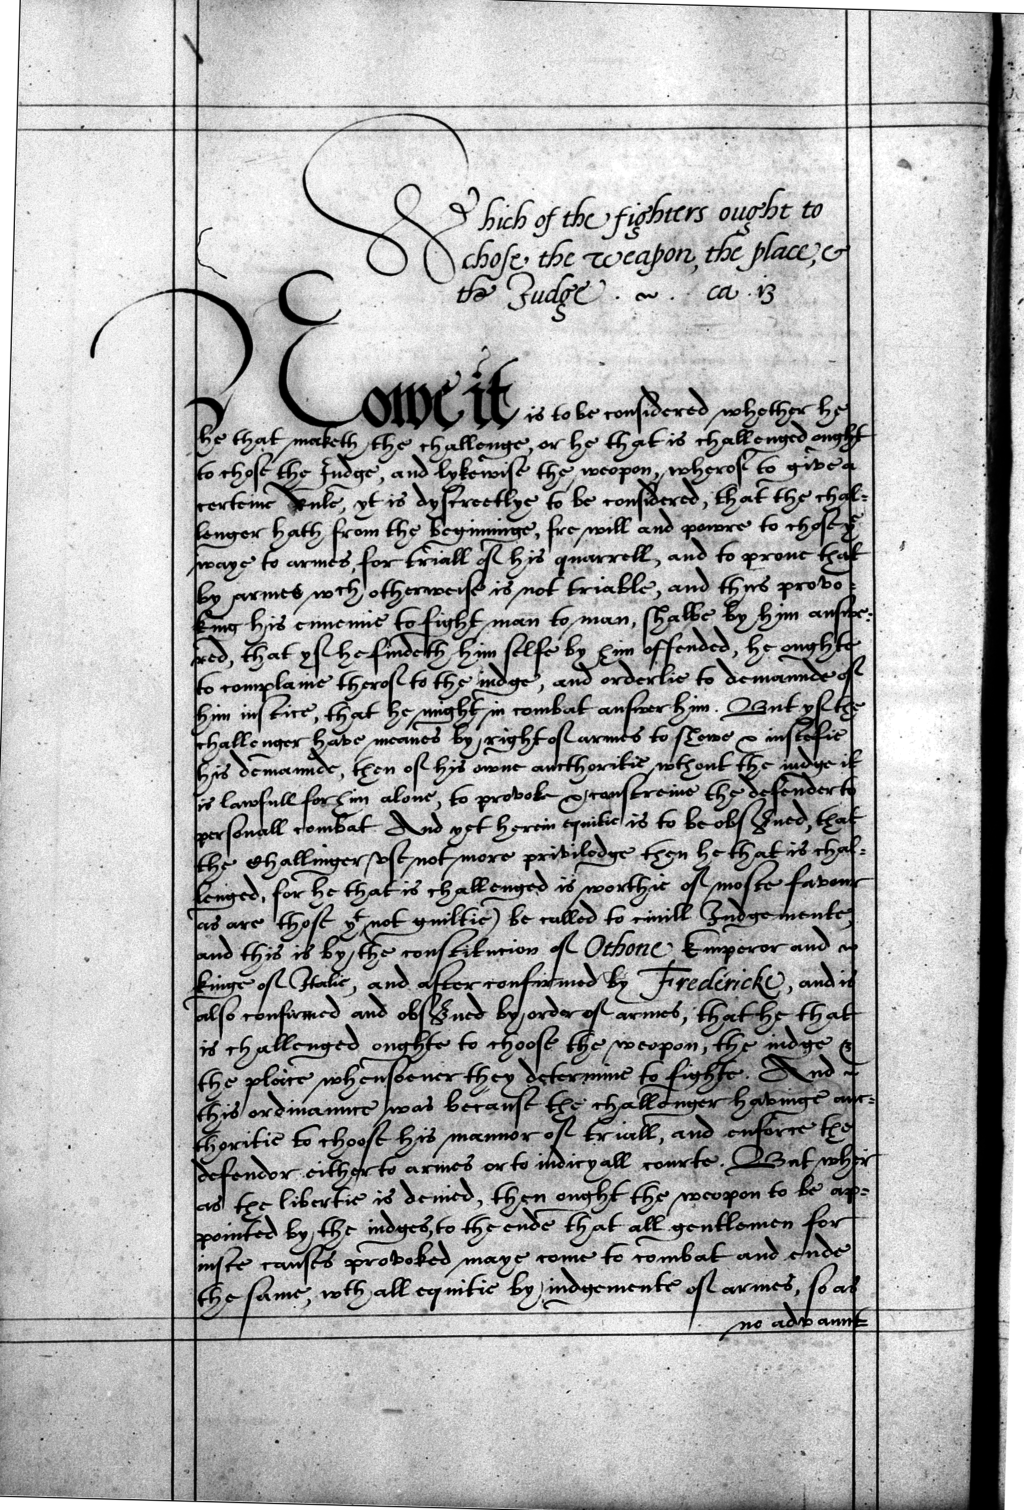 Which of the fighters ought to
chose the weapon, the place, &
the Judge . ~ . ca . 13
Nowe it is to be considered whether he
he that maketh the challenge, or he that is challenged ought
to chose the Judge, and lykewise the weopon, wherof to give a
certeine Rule, yt is dyscreetlye to be considered, that the chal=
lenger hath from the beginninge, fre will and powre to chose ye
waye to armes, for triall of his quarrell, and to proue that
by armes wch otherweise is not triable, and thus provo=
king his ennemie to fight man to man, shalbe by him answe=
red, that yf he findeth him selfe by him offended, he oughte
to complaine therof to the iudge, and orderlie to demaunde of
him iustice, that he might in combat answer him. But yf the
challenger have meanes by right of armes to shewe & iustefie
his demaunde, then of his owne aucthoritie wthout the iudge it
is lawfull for him alone, to provoke & constreine the defender to
personall combat And yet herein equitie is to be obserued, that
the challinger vse not more priviledge then he that is chal=
lenged, for he that is challenged is worthie of moste favour
as are those yt (not guiltie) be called to ciuill Judgemente,
and this is by the constitucion of Othone Emperor and ~
kinge of Italie, and after confirmed by Fredericke, and is
also confirmed and obserued by order of armes, that he that
is challenged oughte to choose the weopon, the iudge &
the place whensoeuer they determine to fighte. And ~
this ordinaunce was because the challenger havinge auc=
thoritie to choose his mannor of triall, and enforce the
defendor either to armes or to iudicyall courte. But wher
as the libertie is denied, then ought the weopon to be ap=
pointed by the iudges, to the ende that all gentlemen for
iuste causes provoked maye come to combat and ende
the same, wth all equitie by iudgemente of armes, so as
no advaunt=